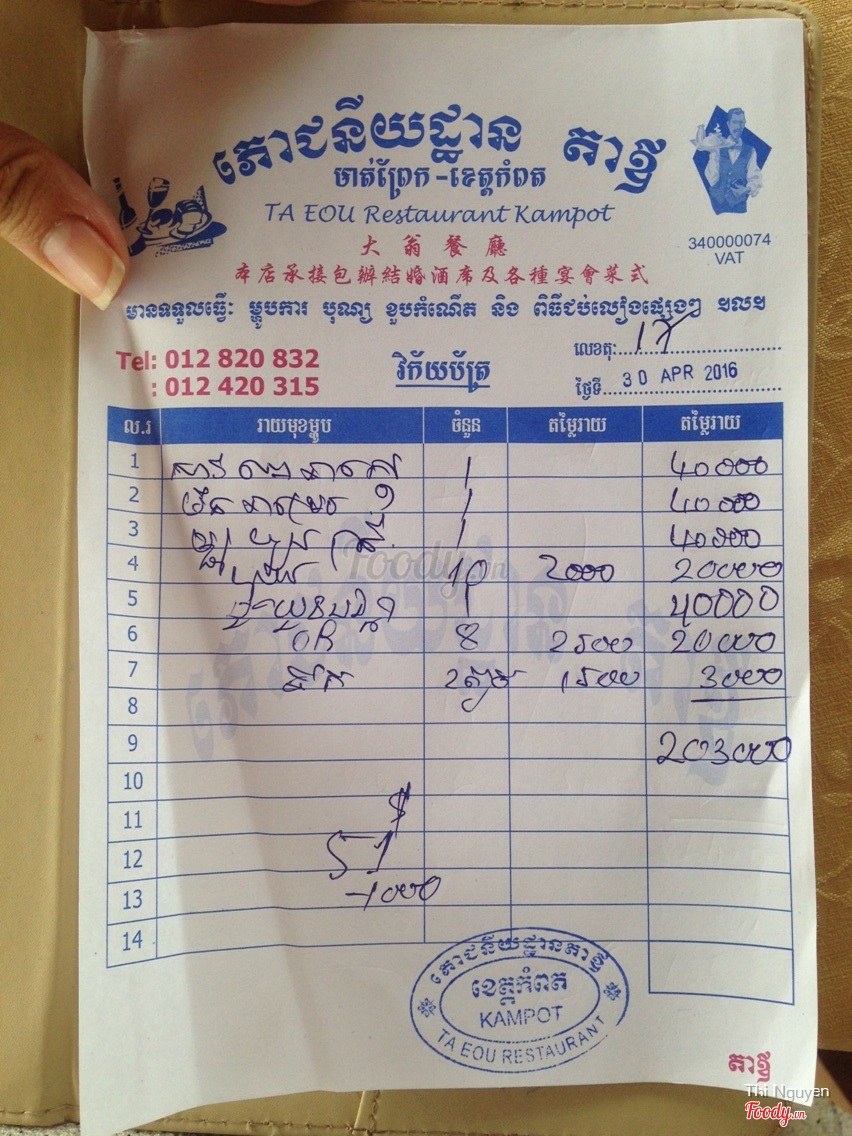 ភោជនីយដ្ឋាន តាឪ
មាត់ព្រែក-ខេត្តកំពត
TA EOU Restaurant Kampot
大翁餐廳
340000074
VAT
本店承接包辦結婚酒席及各種宴會菜式
មានទទួលធ្វើៈ ម្ហូបការ បុណ្យ ខួបកំណើត និង ពិធីជប់លៀងផ្សេងៗ ។ល។
Tel: 012 820 832
: 012 420 315
វិក័យប័ត្រ
លេខតុ: 17
ថ្ងៃទី 30 APR 2016
ល.រ រាយមុខម្ហូប ចំនួន តម្លៃរាយ តម្លៃរាយ
1 1 40000
2 1 40000
3 1 40000
4 10 2000 20000
5 1 40000
6 8 2500 20000
7 2 1500 3000
8
9 203000
10
11 $
12 51
13 -1000
14
ភោជនីយដ្ឋានតាឪ
ខេត្តកំពត
KAMPOT
TA EOU RESTAURANT
តាឪ
Thi Nguyen
Foody.vn
Foody.vn